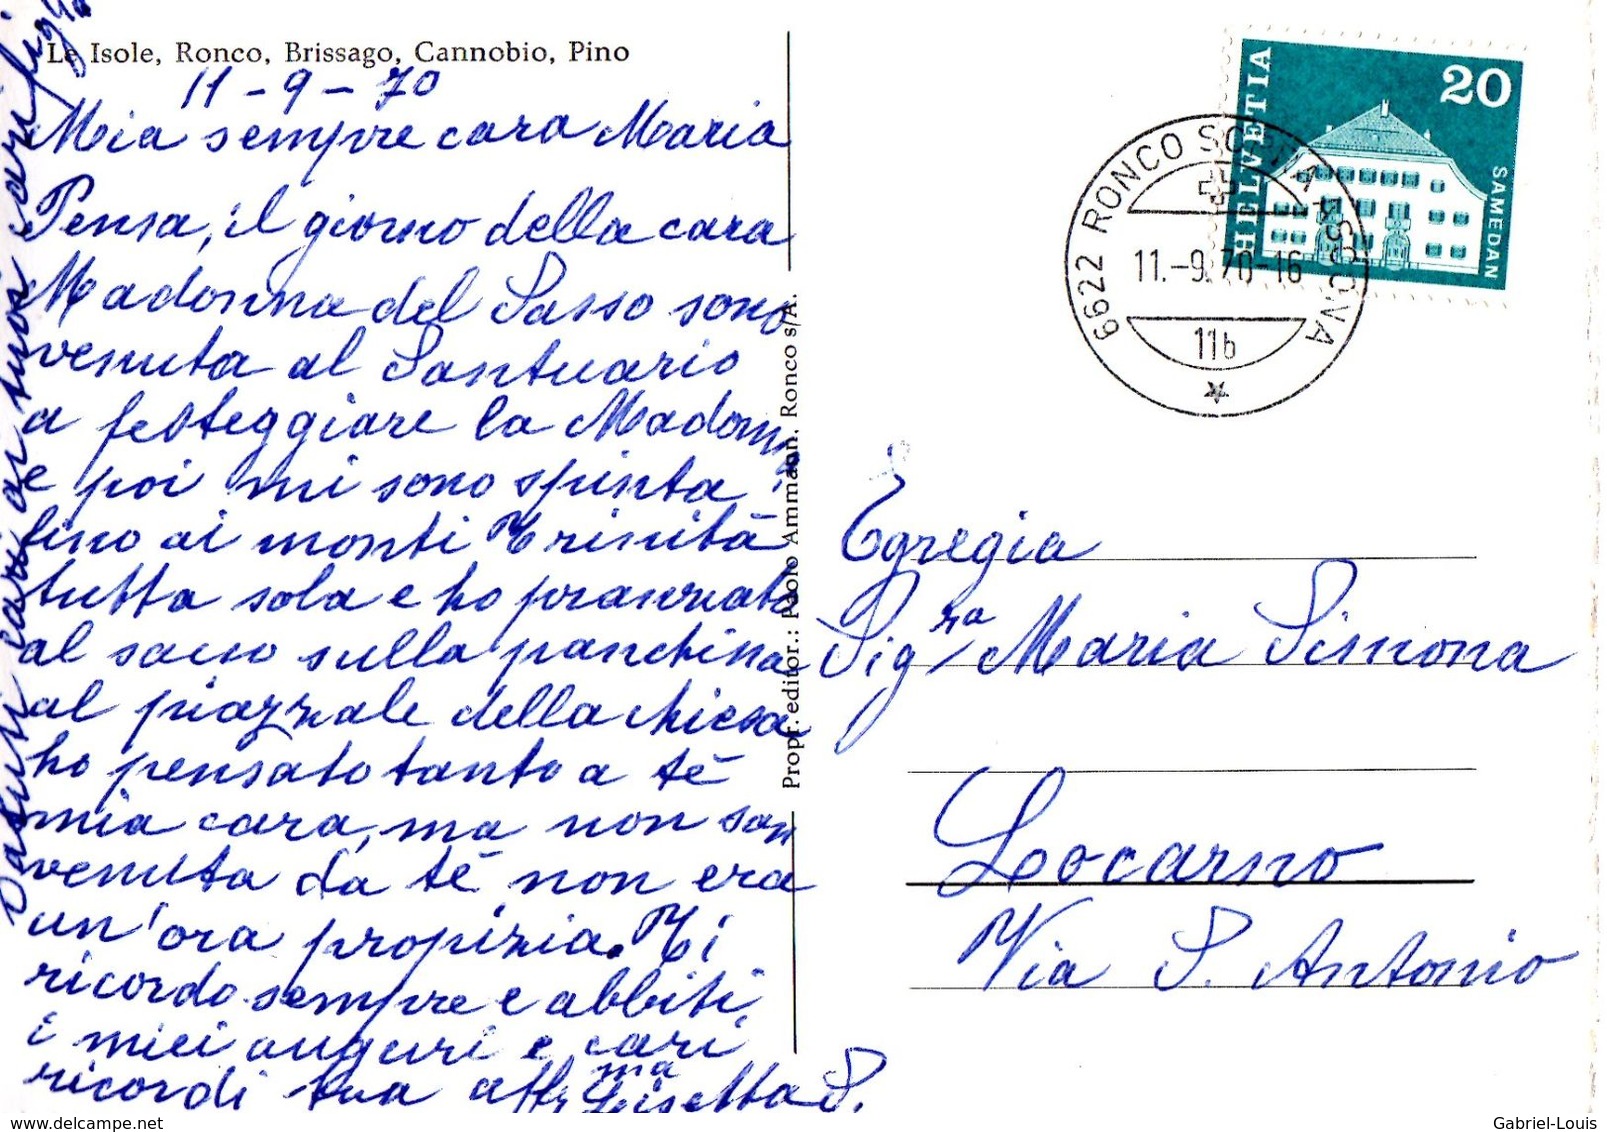 Le Isole, Ronco, Brissago, Cannobio, Pino
11-9-70
Mia sempre cara Maria
Pensa, il giorno della cara
Madonna del Sasso sono
venuta al Santuario
a festeggiare la Madonna
e poi mi sono spinta
fino ai monti Trinità
tutta sola e ho pranzato
al sacco sulla panchina
al piazzale della chiesa
ho pensato tanto a tè
mia cara, ma non son
venuta da tè non era
un'ora propizia. Ti
ricordo sempre e abbiti,
i miei auguri e cari
ricordi tua aff.ma Lisetta S.
Saluti cari ai tuoi cari figli
Propr. editor.: Paolo Ammann, Ronco s/A.
HELVETIA
20
SAMEDAN
6622 RONCO SOPRA ASCONA
11.-9.70-16
11b
Egregia
Sig.ra Maria Simona
Locarno
Via S. Antonio
Gabriel-Louis